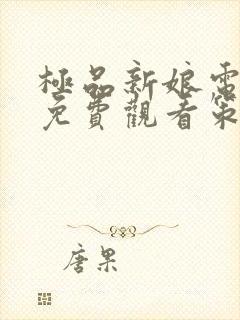 極品新娘電
免費觀看第
唐果